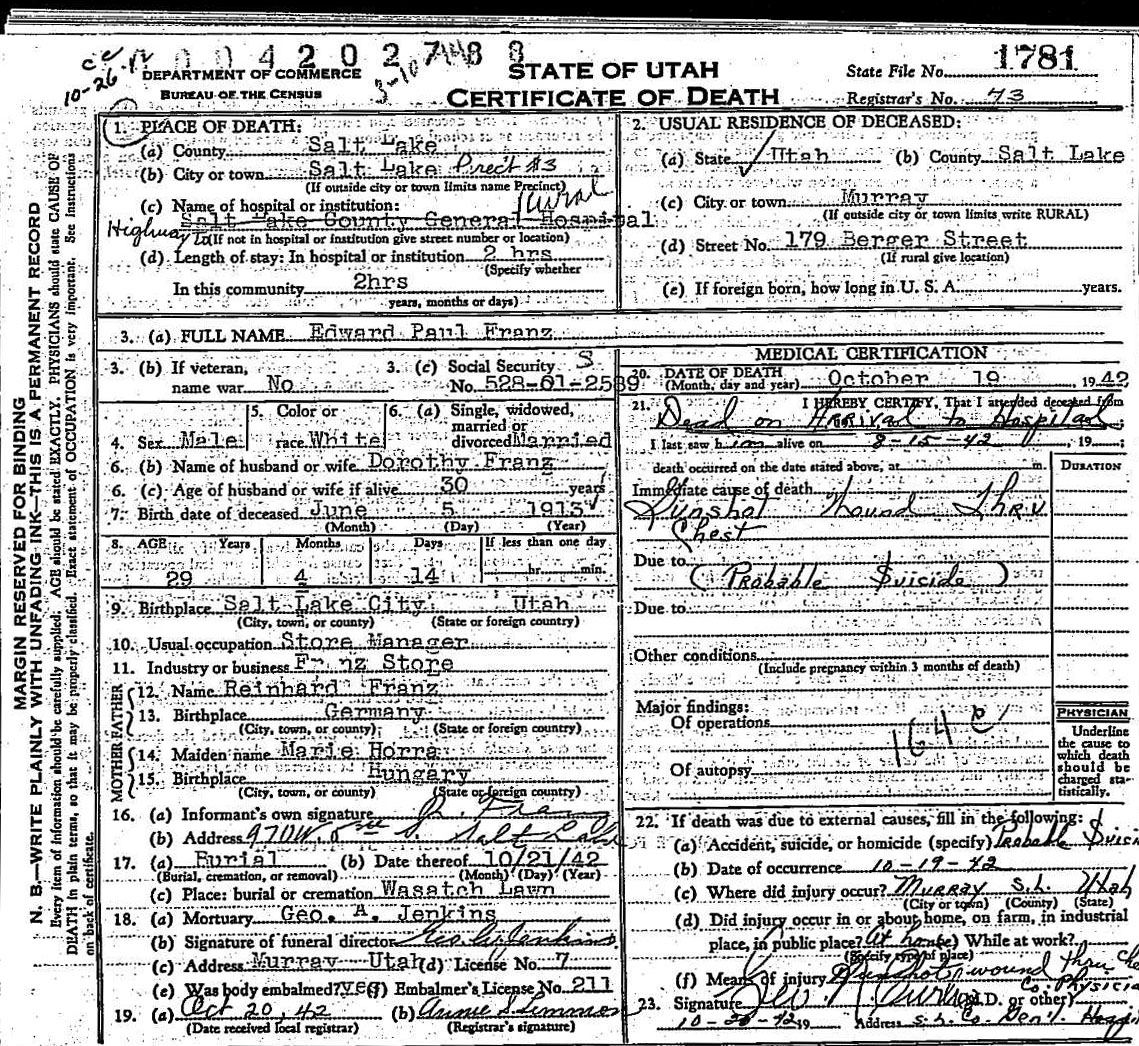 cc
10-26-42
004202788
3-10
DEPARTMENT OF COMMERCE
BUREAU OF THE CENSUS
STATE OF UTAH
CERTIFICATE OF DEATH
State File No. 1781
Registrar's No. 73
1. PLACE OF DEATH:
(a) County Salt Lake
(b) City or town Salt Lake Prect #3
(If outside city or town limits name Precinct)
Rural
(c) Name of hospital or institution:
Salt Lake County General Hospital
Highway to (If not in hospital or institution give street number or location)
(d) Length of stay: In hospital or institution 2 hrs
(Specify whether
In this community 2hrs
years, months or days)
2. USUAL RESIDENCE OF DECEASED:
(a) State Utah (b) County Salt Lake
(c) City or town Murray
(If outside city or town limits write RURAL)
(d) Street No. 179 Berger Street
(If rural give location)
(e) If foreign born, how long in U. S. A. years.
3. (a) FULL NAME Edward Paul Franz
3. (b) If veteran, name war No
3. (c) Social Security S
No. 528-01-2589
4. Sex Male
5. Color or race White
6. (a) Single, widowed, married or divorced Married
6. (b) Name of husband or wife Dorothy Franz
6. (c) Age of husband or wife if alive 30 years
7. Birth date of deceased June 5 1913
(Month) (Day) (Year)
8. AGE Years Months Days If less than one day
29 4 14 hr. min.
9. Birthplace Salt Lake City Utah
(City, town, or county) (State or foreign country)
10. Usual occupation Store Manager
11. Industry or business Franz Store
FATHER
12. Name Reinhard Franz
13. Birthplace Germany
(City, town, or county) (State or foreign country)
MOTHER
14. Maiden name Marie Horra
15. Birthplace Hungary
(City, town, or county) (State or foreign country)
16. (a) Informant's own signature Franz
(b) Address 970 W. S. Salt Lake
17. (a) Burial (b) Date thereof 10/21/42
(Burial, cremation, or removal) (Month) (Day) (Year)
(c) Place: burial or cremation Wasatch Lawn
18. (a) Mortuary Geo. A. Jenkins
(b) Signature of funeral director Geo. A. Jenkins
(c) Address Murray Utah (d) License No. 7
(e) Was body embalmed? yes (f) Embalmer's License No. 211
19. (a) Oct 20, 42 (b) Annie S Simmons
(Date received local registrar) (Registrar's signature)
MEDICAL CERTIFICATION
20. DATE OF DEATH
(Month, day and year) October 19 , 1942
21. I HEREBY CERTIFY, That I attended deceased from
Dead on Arrival to Hospital
I last saw him alive on 8-15-42, 19
death occurred on the date stated above, at m. DURATION
Immediate cause of death
Gunshot Wound Thru
Chest
Due to
(Probable Suicide)
Due to
Other conditions
(Include pregnancy within 3 months of death)
Major findings:
Of operations
164 c
Of autopsy
PHYSICIAN
Underline
the cause to
which death
should be
charged sta-
tistically.
22. If death was due to external causes, fill in the following:
(a) Accident, suicide, or homicide (specify) Probable Suici
(b) Date of occurrence 10-19-42
(c) Where did injury occur? Murray S.L. Utah
(City or town) (County) (State)
(d) Did injury occur in or about home, on farm, in industrial
place, in public place? At home While at work?
(Specify type of place)
(f) Means of injury Gunshot wound thru che
Co. Physicia
23. Signature (M.D. or other)
10-20-42 19 Address S. L. Co. Gen'l. Hospi
MARGIN RESERVED FOR BINDING
N. B.—WRITE PLAINLY WITH UNFADING INK—THIS IS A PERMANENT RECORD
Every item of information should be carefully supplied. AGE should be stated EXACTLY. PHYSICIANS should state CAUSE OF
DEATH in plain terms, so that it may be properly classified. Exact statement of OCCUPATION is very important. See Instructions
on back of certificate.